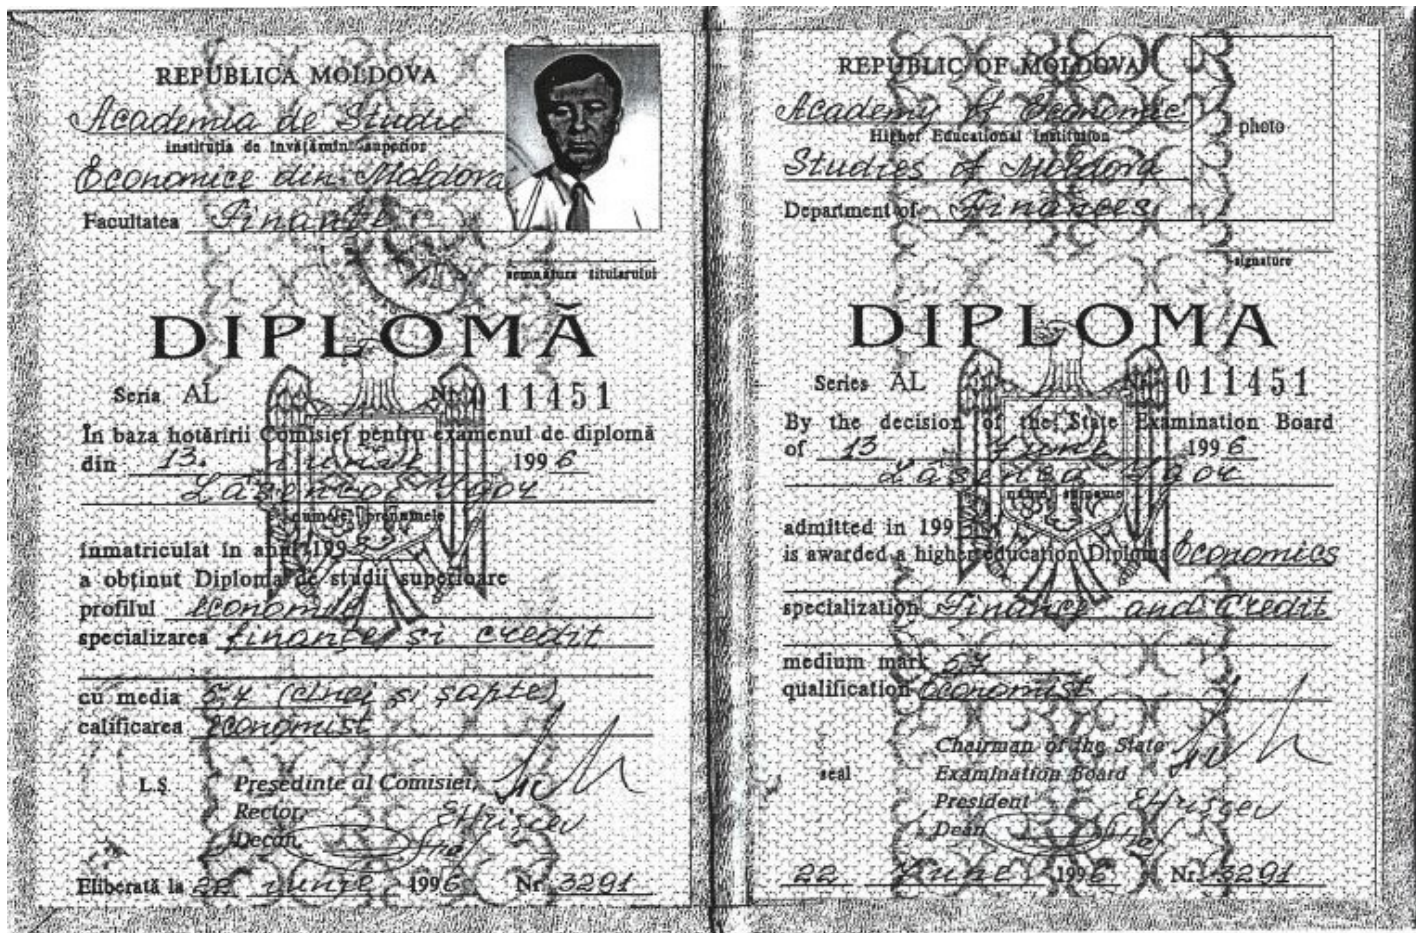 REPUBLICA MOLDOVA
Academia de Studii
instituția de învățămînt superior
Economice din Moldova
Facultatea Finanțe
semnătura titularului
DIPLOMĂ
Seria AL Nr. 011451
În baza hotărîrii Comisiei pentru examenul de diplomă
din 13. iunie 1996
Igor
numele, prenumele
înmatriculat în anul 199
a obținut Diploma de studii superioare
profilul economie
specializarea finanțe și credit
cu media 5,7 (cinci și șapte)
calificarea economist
L.Ș. Președinte al Comisiei,
Rector,
Decan,
Eliberată la 22 iunie 1996 Nr. 3291
REPUBLIC OF MOLDOVA
Academy of Economic
Higher Educational Institution
photo
Studies of Moldova
Department of Finances
signature
DIPLOMA
Series AL Nr. 011451
By the decision of the State Examination Board
of 13 June 1996
Igor
name, surname
admitted in 199
is awarded a higher education Diploma Economics
specialization Finance and Credit
medium mark 5,7
qualification economist
Chairman of the State
seal Examination Board
President
Dean
22 June 1996 Nr. 3291